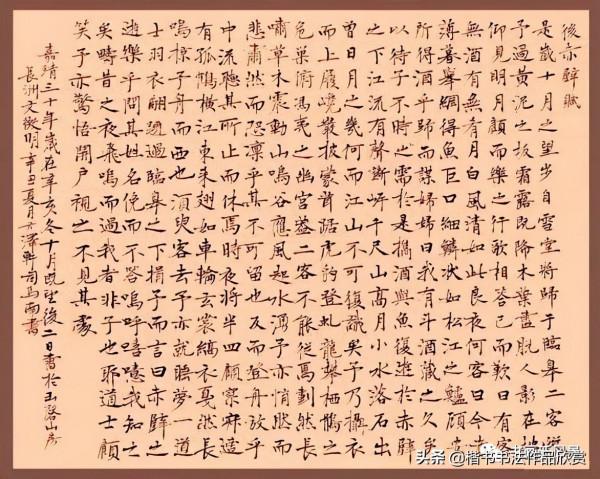 後赤壁賦
是歲十月之望步自雪堂將歸于臨皋二客從
予過黃泥之坂霜露既降木葉盡脫人影在地
仰見明月顧而樂之行歌相答已而歎曰有客
無酒有無肴月白風清如此良夜何客曰今者
薄暮舉網得魚巨口細鱗狀如松江之鱸顧安
所得酒乎歸而謀婦婦曰我有斗酒藏之久矣
以待子不時之需於是攜酒與魚復遊於赤壁
之下江流有聲斷岸千尺山高月小水落石出
曾日月之幾何而江山不可復識矣予乃攝衣
而上履巉巖披蒙茸踞虎豹登虬龍攀栖鶻之
危巢俯馮夷之幽宮蓋二客不能從焉劃然長
嘯草木震動山鳴谷應風起水湧予亦悄然而
悲肅然而恐凜乎其不可留也反而登舟放乎
中流聽其所止而休焉時夜將半四顧寂寥適
有孤鶴橫江東來翅如車輪玄裳縞衣戛然長
鳴掠予舟而西也須臾客去予亦就睡夢一道
士羽衣翩躚過臨皋之下揖予而言曰赤壁之
遊樂乎問其姓名俛而不答嗚呼噫嘻我知之
矣疇昔之夜飛鳴而過我者非子也耶道士顧
笑予亦驚悟開戶視之不見其處
嘉靖三十年歲在辛亥冬十月既望後二日書於玉磬山房
長洲文徵明辛丑夏月澤軒司馬南書
头条 @楷书书法作品欣赏